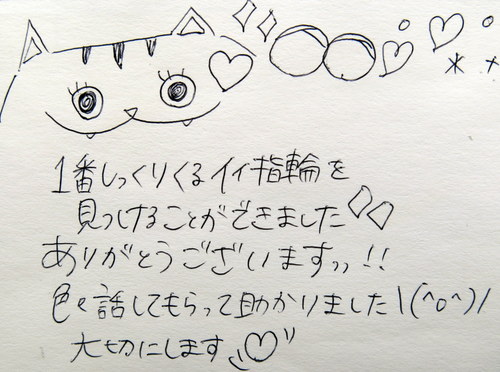 1番しっくりくるイイ指輪を
見つけることができました
ありがとうございますッッ!!
色々話してもらって助かりました\(^o^)/
大切にします